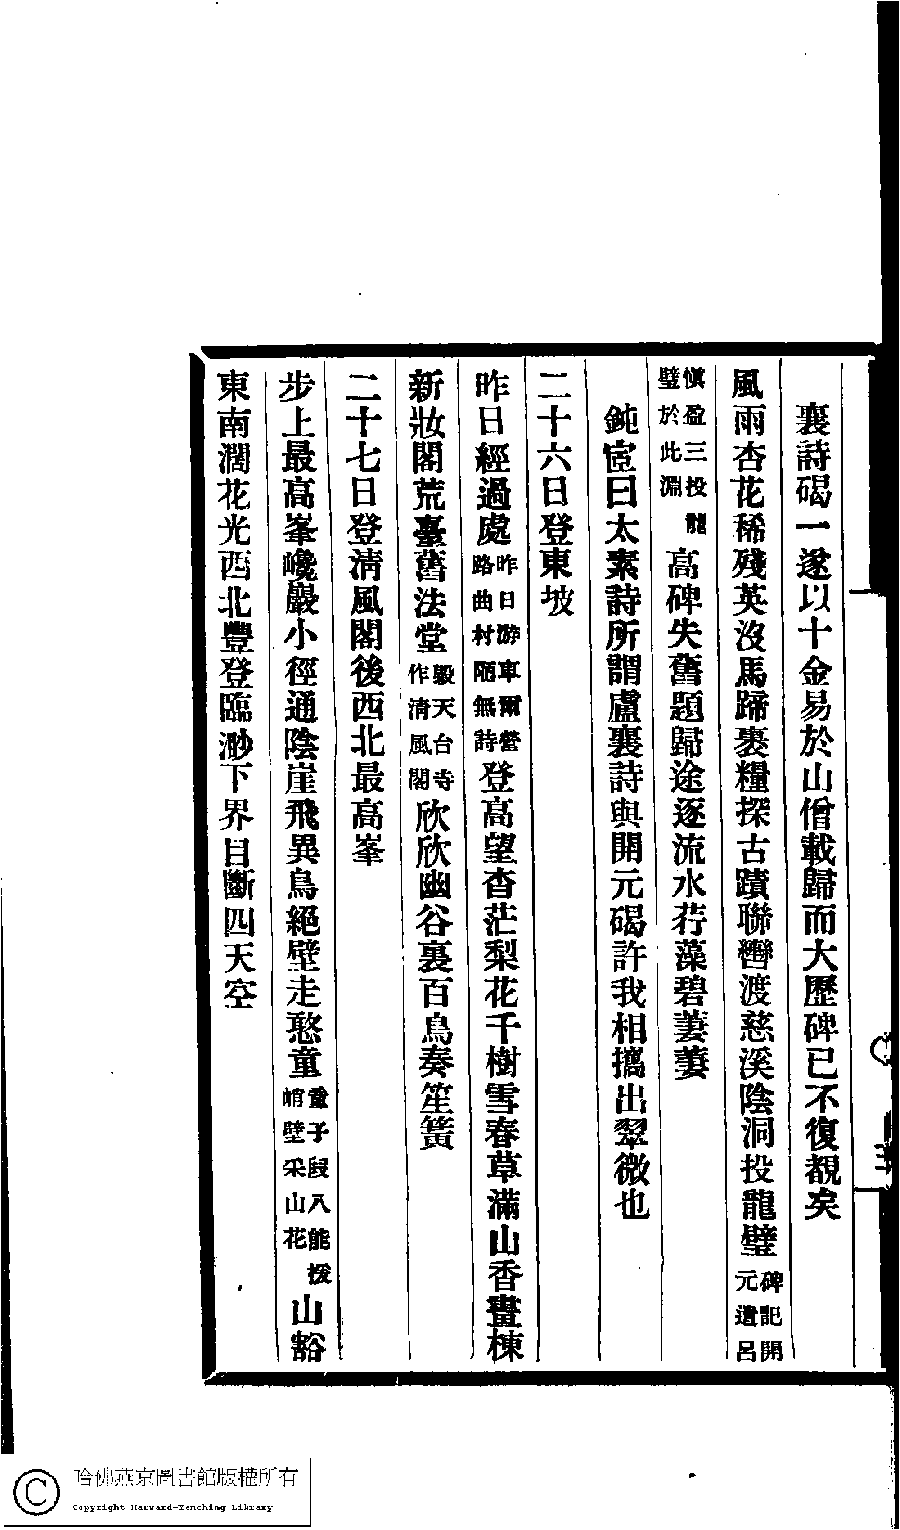 襄詩碣一遂以十金易於山僧載歸而大歷碑已不復覩矣
風雨杏花稀殘英沒馬蹄裹糧探古蹟聯轡渡慈溪陰洞投龍璧碑記開元遣呂
愼盈三投龍璧於此淵高碑失舊題歸途逐流水荇藻碧萋萋
鈍宧曰太素詩所謂盧襄詩與開元碣許我相攜出翠微也
二十六日登東坡
昨日經過處昨日游車爾營路曲村陋無詩登高望杳茫梨花千樹雪春草滿山香畫棟
新妝閣荒臺舊法堂毀天台寺作清風閣欣欣幽谷裏百鳥奏笙簧
二十七日登清風閣後西北最高峯
步上最高峯巉巖小徑通陰崖飛異鳥絕壁走憨童童子段八能援峭壁采山花山豁
東南濶花光西北豐登臨渺下界目斷四天空
哈佛燕京圖書館版權所有
Copyright Harvard-Yenching Library